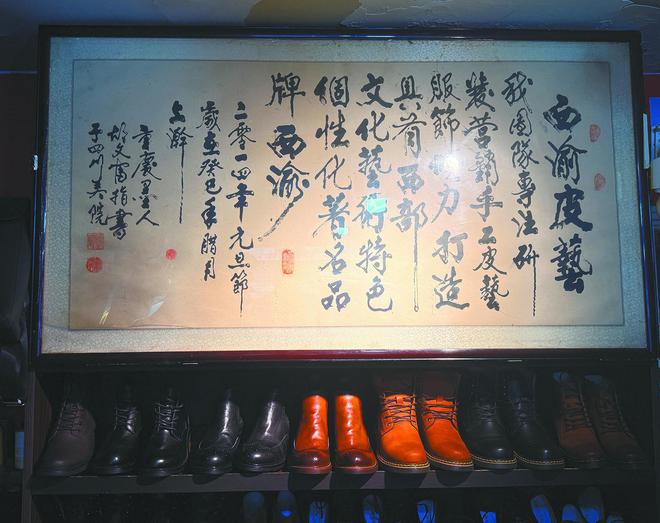 西渝皮藝
我團隊專注研
製營銷手工皮藝
服飾力打造
具有西部
文化藝術特色
個性化著名品
牌西渝
二零一四年元旦節
歲在癸巳年臘月
上澣
重慶墨人
胡文富指書
于四川美院